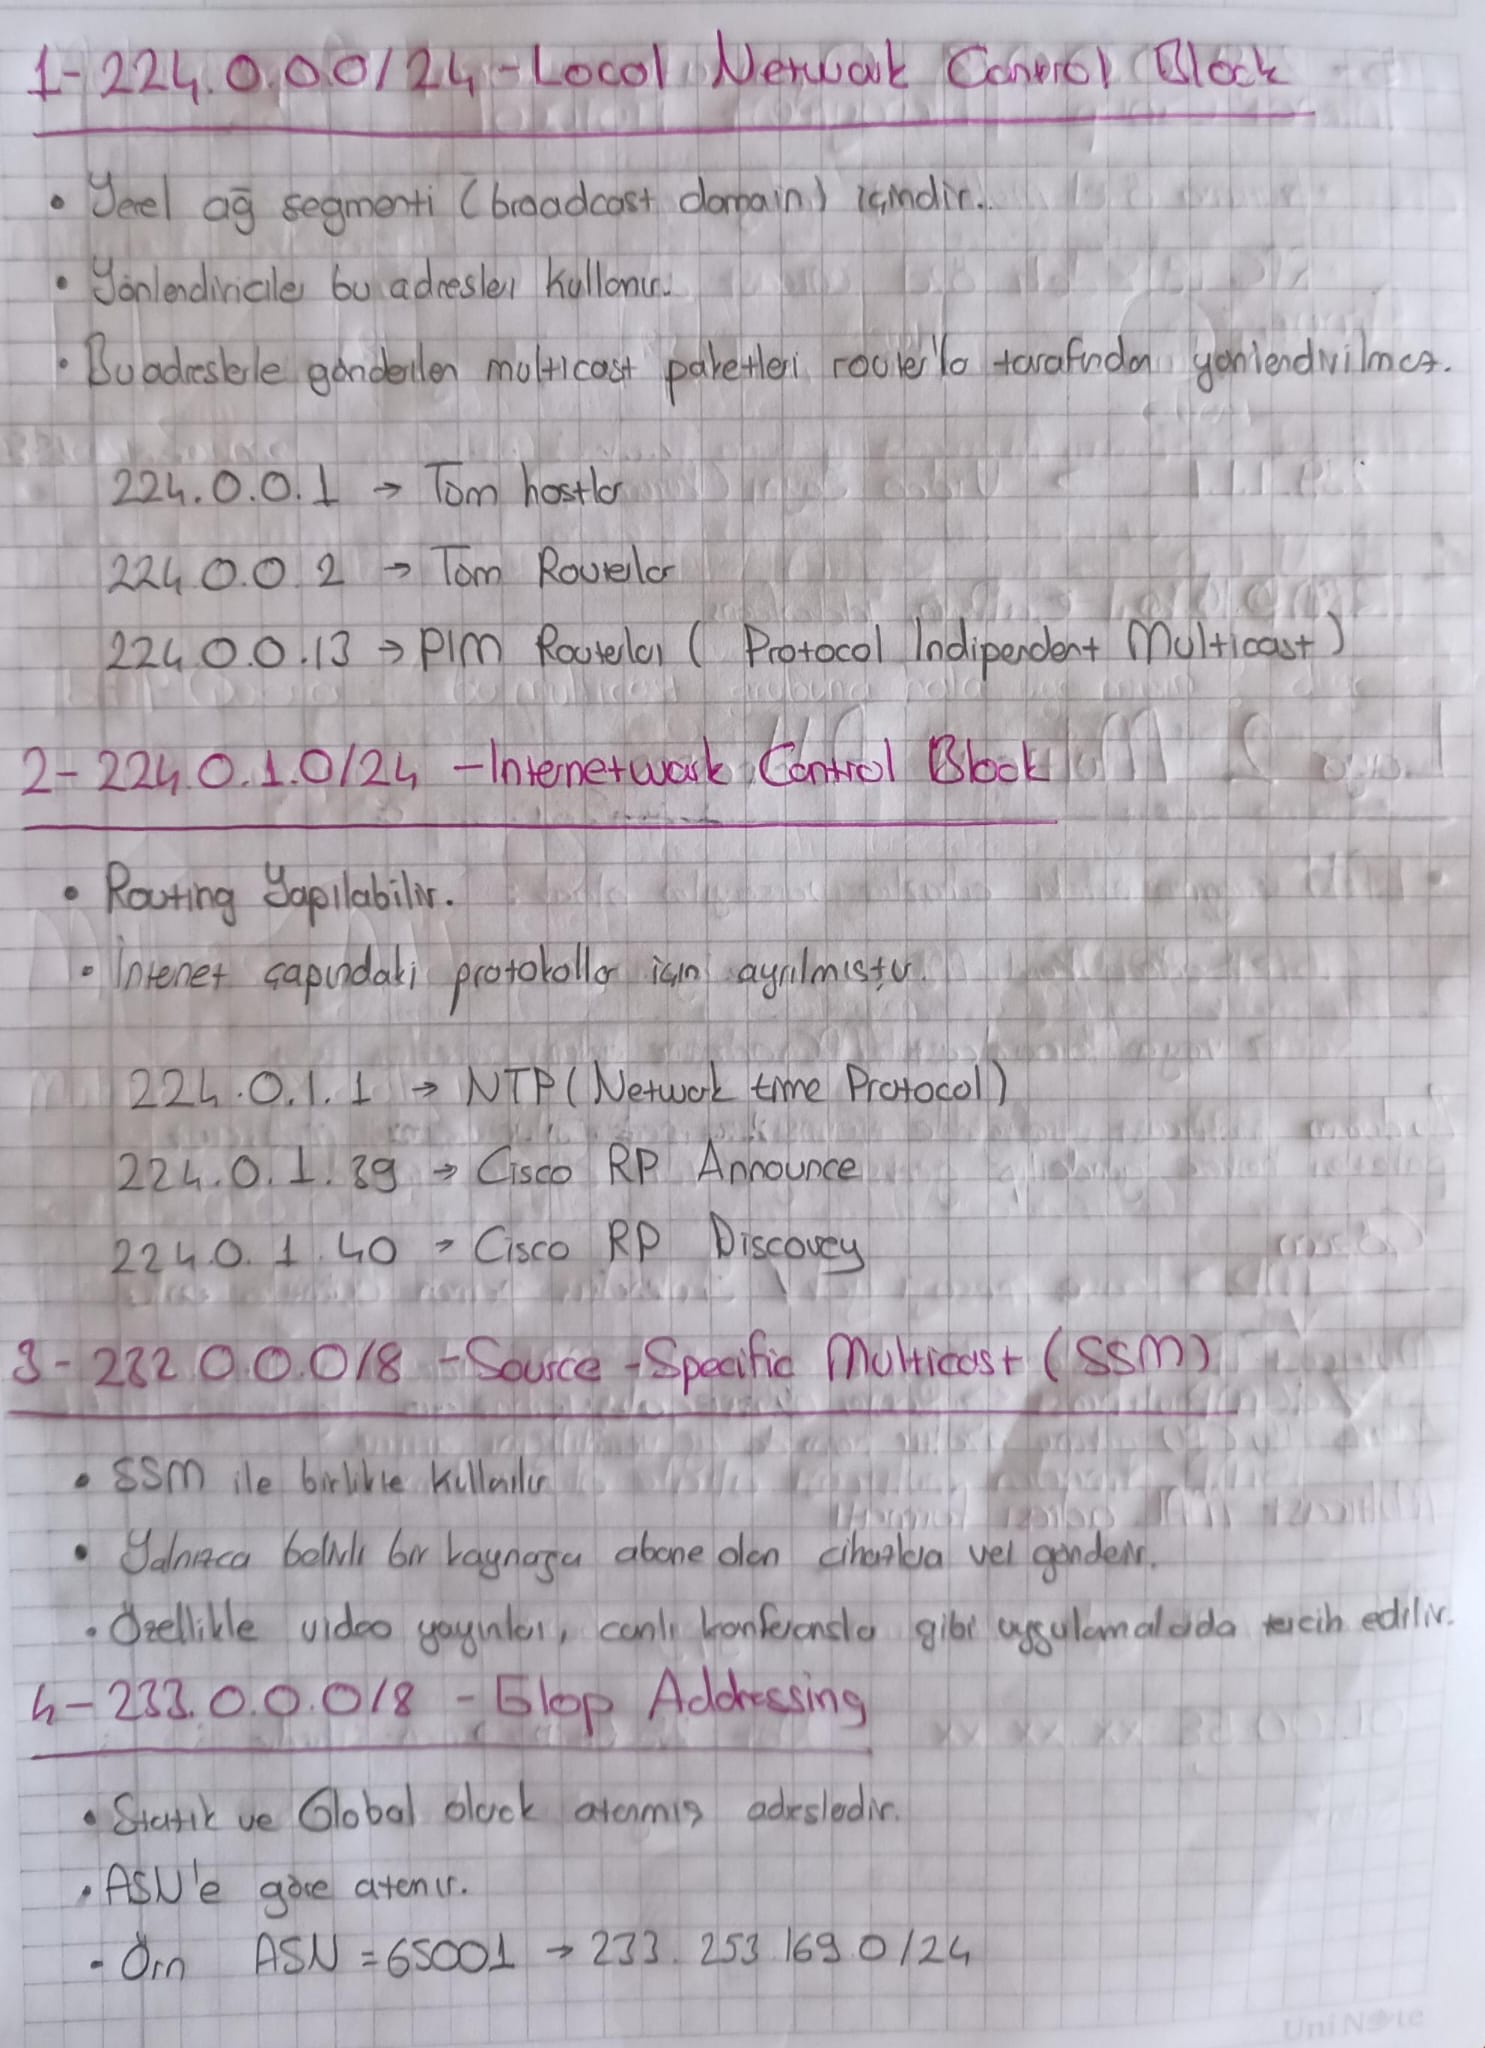 1-224.0.0.0/24 - Local Network Control Block
• Yerel ağ segmenti (broadcast domain) içindir.
• Yönlendiriciler bu adresler kullanır.
• Bu adreslerle gönderilen multicast paketleri router'lar tarafından yönlendirilmez.
224.0.0.1 → Tüm hostlar
224.0.0.2 → Tüm Routerlar
224.0.0.13 → PIM Routerları ( Protocol Indipendent Multicast )
2-224.0.1.0/24 - Internetwork Control Block
• Routing Yapılabilir.
• İnternet çapındaki protokollar için ayrılmıştır.
224.0.1.1 → NTP (Network time Protocol)
224.0.1.39 → Cisco RP Announce
224.0.1.40 → Cisco RP Discovey
3-232.0.0.0/8 - Source-Specific Multicast (SSM)
• SSM ile birlikte kullanılır
• Yalnızca belirli bir kaynağa abone olan cihazlara veri gönderir.
• Özellikle video yayınları, canlı konferanslar gibi uygulamalarda tercih edilir.
4-233.0.0.0/8 - Glop Addressing
• Statik ve Global olarak atanmış adreslerdir.
• ASN'e göre atanır.
- Örn ASN = 65001 → 233.253.169.0/24
UniNote